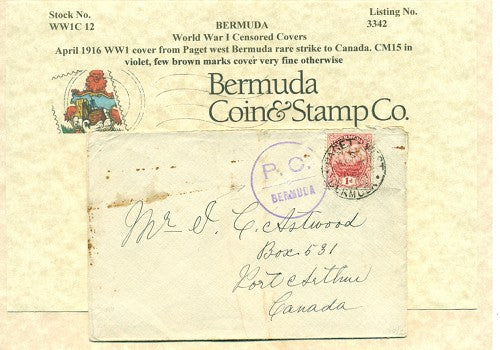 Stock No.
WW1C 12
BERMUDA
Listing No.
3342
World War I Censored Covers
April 1916 WW1 cover from Paget west Bermuda rare strike to Canada. CM15 in
violet, few brown marks cover very fine otherwise
Bermuda
Coin&Stamp Co.
P. C.
BERMUDA
PAGET WEST
BERMUDA
1d
Mr J. C. Astwood
Box 531
Port Arthur
Canada